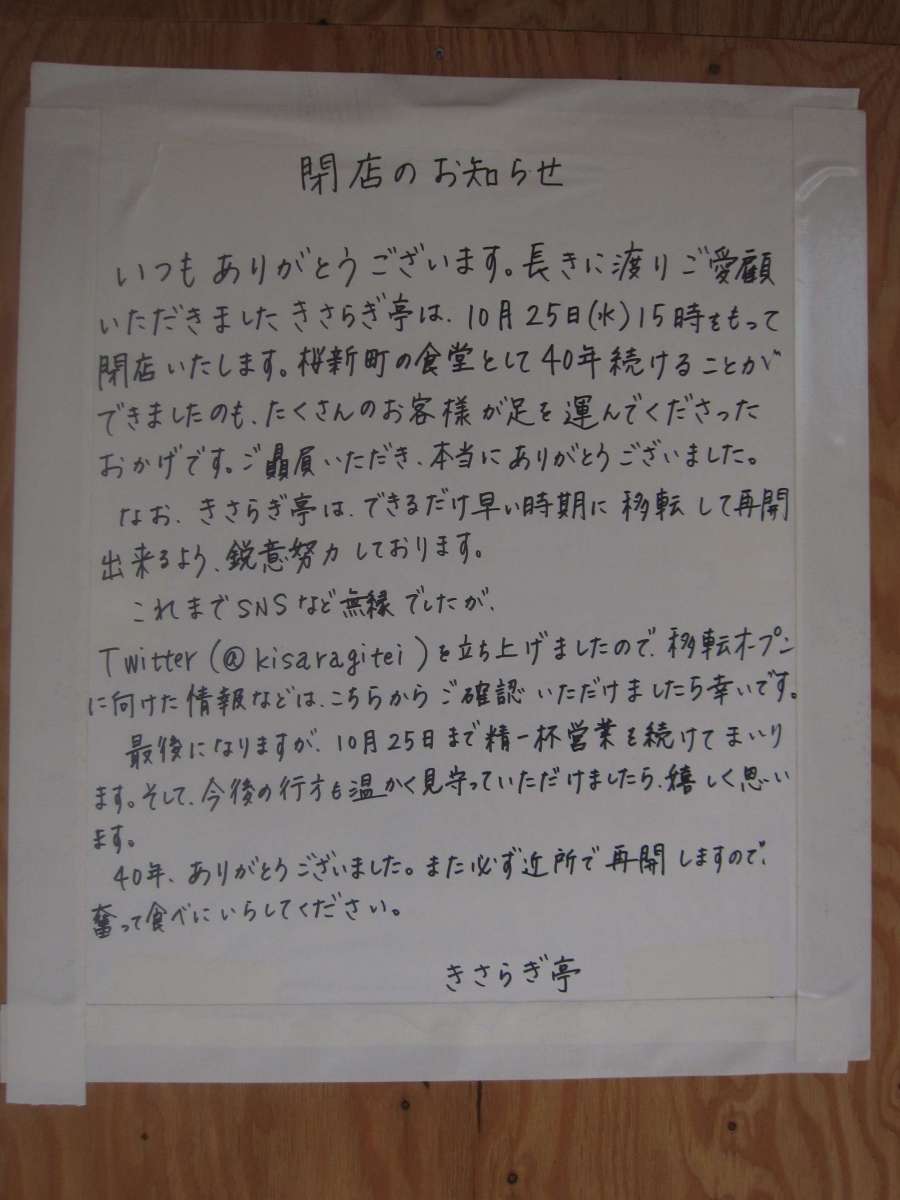 閉店のお知らせ
いつもありがとうございます。長きに渡りご愛顧
いただきましたきさらぎ亭は、10月25日(水)15時をもって
閉店いたします。桜新町の食堂として40年続けることが
できましたのも、たくさんのお客様が足を運んでくださった
おかげです。ご贔屓いただき、本当にありがとうございました。
なお、きさらぎ亭は、できるだけ早い時期に移転して再開
出来るよう、鋭意努力しております。
これまでSNSなど無縁でしたが、
Twitter(@kisaragitei)を立ち上げましたので、移転オープン
に向けた情報などは、こちらからご確認いただけましたら幸いです。
最後になりますが、10月25日まで精一杯営業を続けてまいり
ます。そして、今後の行方も温かく見守っていただけましたら、嬉しく思い
ます。
40年、ありがとうございました。また必ず近所で再開しますので、
奮って食べにいらしてください。
きさらぎ亭